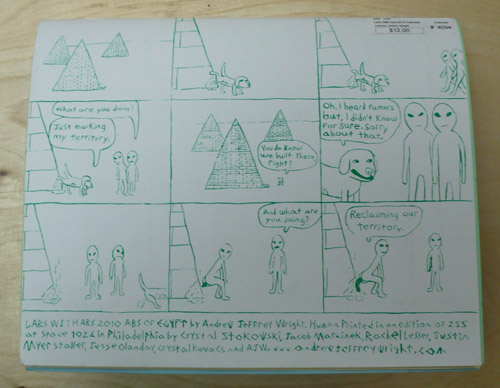 $12.00
# 4034
What are you doing?
Just marking
my territory.
You do know
we built these,
right?
Oh, I heard rumors
but, I didn't know
for sure. Sorry
about that.
And what are
you doing?
Reclaiming our
territory.
LABS WITH ABS 2010 ABS OF EGYPT by Andrew Jeffrey Wright. Human Printed in an edition of 255
at Space 1026 in Philadelphia by Crystal Stokowski, Jacob Marcinek, Rachel Lesser, Justin
Myer Staller, Jesse Olanday, Crystal Kovacs and AJW... andrewjeffreywright.com